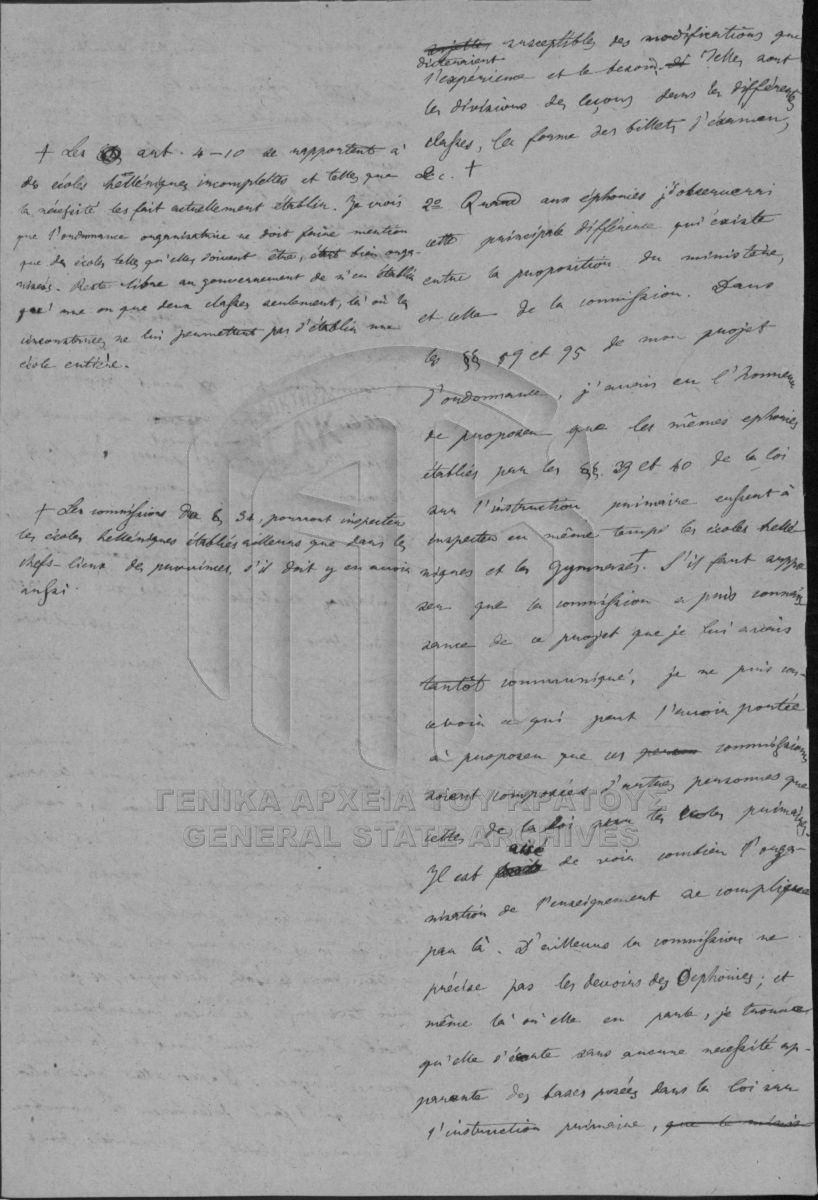 + Les art. 4-10 se rapportent à
des écoles helléniques incomplettes et telles que
la nécessité les fait actuellement établir. Je crois
que l'ordonnance organisatrice ne doit faire mention
que des écoles telles qu'elles doivent être, étant bien orga-
nisées. Reste libre au gouvernement de n'en établir
qu'une ou que deux classes seulement, là où les
circonstances ne lui permettent pas d'établir une
école entière.
+ Les commissions du § 34, pourront inspecter
les écoles helléniques établies ailleurs que dans les
chefs-lieux des provinces, s'il doit y en avoir
aussi.
sujettes susceptibles des modifications que
dicteraient
l'expérience et le besoin. Telles sont
les divisions des leçons dans les différentes
classes, la forme des billets d'examen,
&c. +
2o Quand aux éphories j'observerai
cette principale différence qui existe
entre la proposition du ministère,
et celle de la commission. Dans
les §§ 89 et 95 de mon projet
d'ordonnance, j'avais eu l'honneur
de proposer que les mêmes ephories
établies par les §§. 39 et 40 de la loi
sur l'instruction primaire eussent à
inspecter en même temps les écoles hellé
niques et les gymnases+. S'il faut suppo
ser que la commission a pris connais
sance de ce projet que je lui avais
tantôt communiqué, je ne puis con-
cevoir ce qui peut l'avoir portée
à proposer que ces commissions
soient composées d'autres personnes que
celles de la loi pour les écoles primaires.
aisé
Il est de voir combien l'orga-
nisation de l'enseignement se complique
par là. D'ailleurs la commission ne
précise pas les devoirs des Ephories; et
même là où elle en parle, je trouve
qu'elle s'écarte sans aucune nécessité ap-
parente des bases posées dans la loi sur
l'instruction primaire, que le
ΓΕΝΙΚΑ ΑΡΧΕΙΑ ΤΟΥ ΚΡΑΤΟΥΣ
GENERAL STATE ARCHIVES